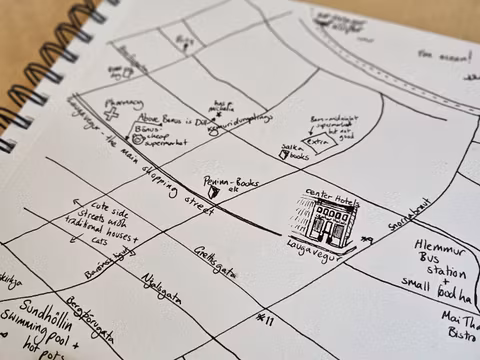 The ocean!
Pharmacy
Above Bónus is
Bónus
cheap
supermarket
Extra
Salka
books
Peninn-Books
etc
Laugavegur - the main shopping street
Center Hotels
Laugavegur
#9
Snorrabraut
cute side
streets with
traditional houses +
cats
Grettisgata
Njalsgata
#11
Bergþorugata
Sundhöllin
Swimming pool +
hot pots
Hlemmur
Bus
station
+
small food ha
Mai Tha
Bistro